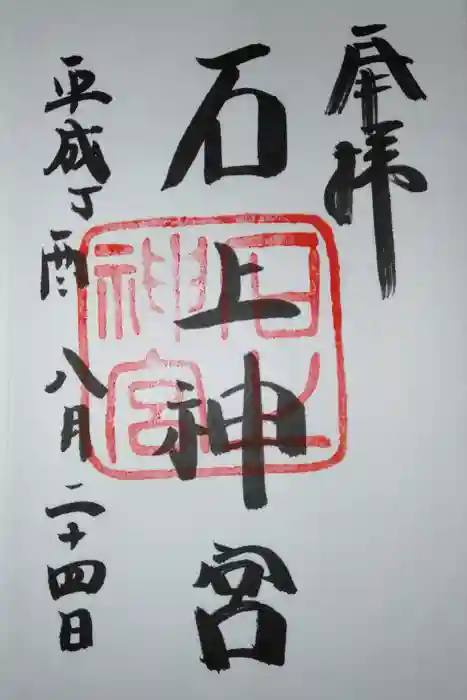 奉拝
石上神宮
平成丁酉 八月 二十四日
石上神宮